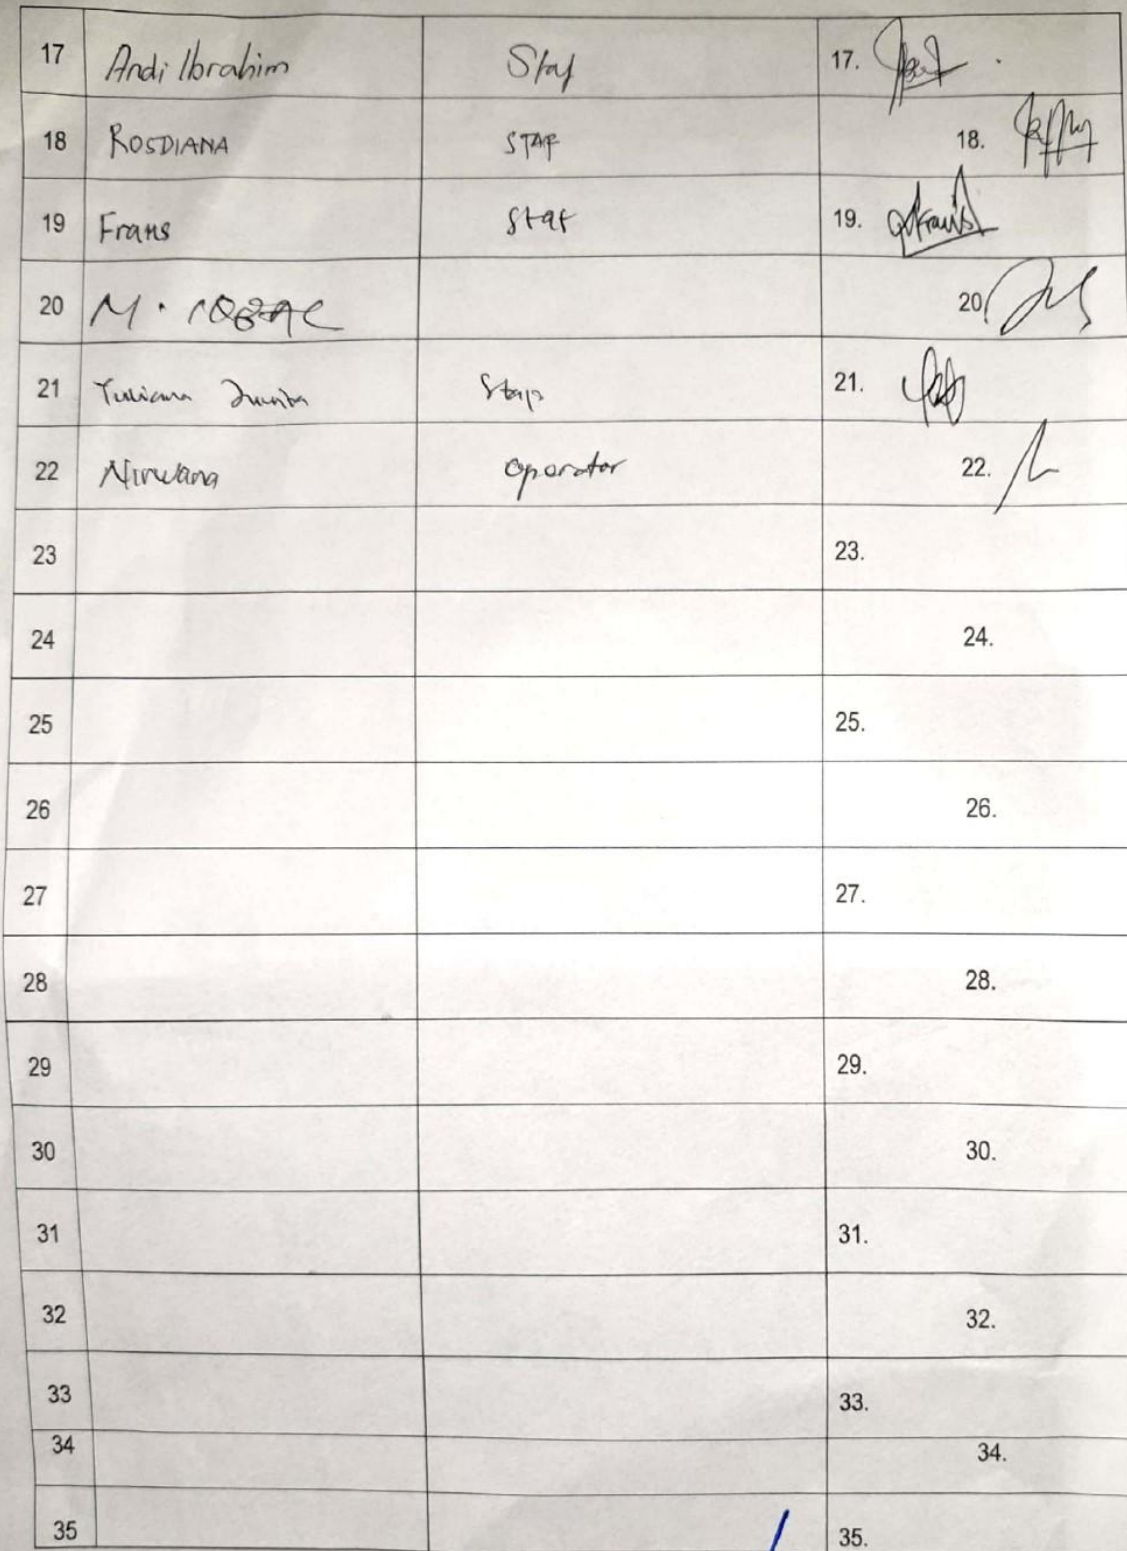 17 Andi Ibrahim Staf 17.
18 ROSDIANA STAF 18.
19 Frans Staf 19.
20 M. IQBAL 20
21 Yuliana Staf 21.
22 Nirwana operator 22.
23 23.
24 24.
25 25.
26 26.
27 27.
28 28.
29 29.
30 30.
31 31.
32 32.
33 33.
34 34.
35 35.